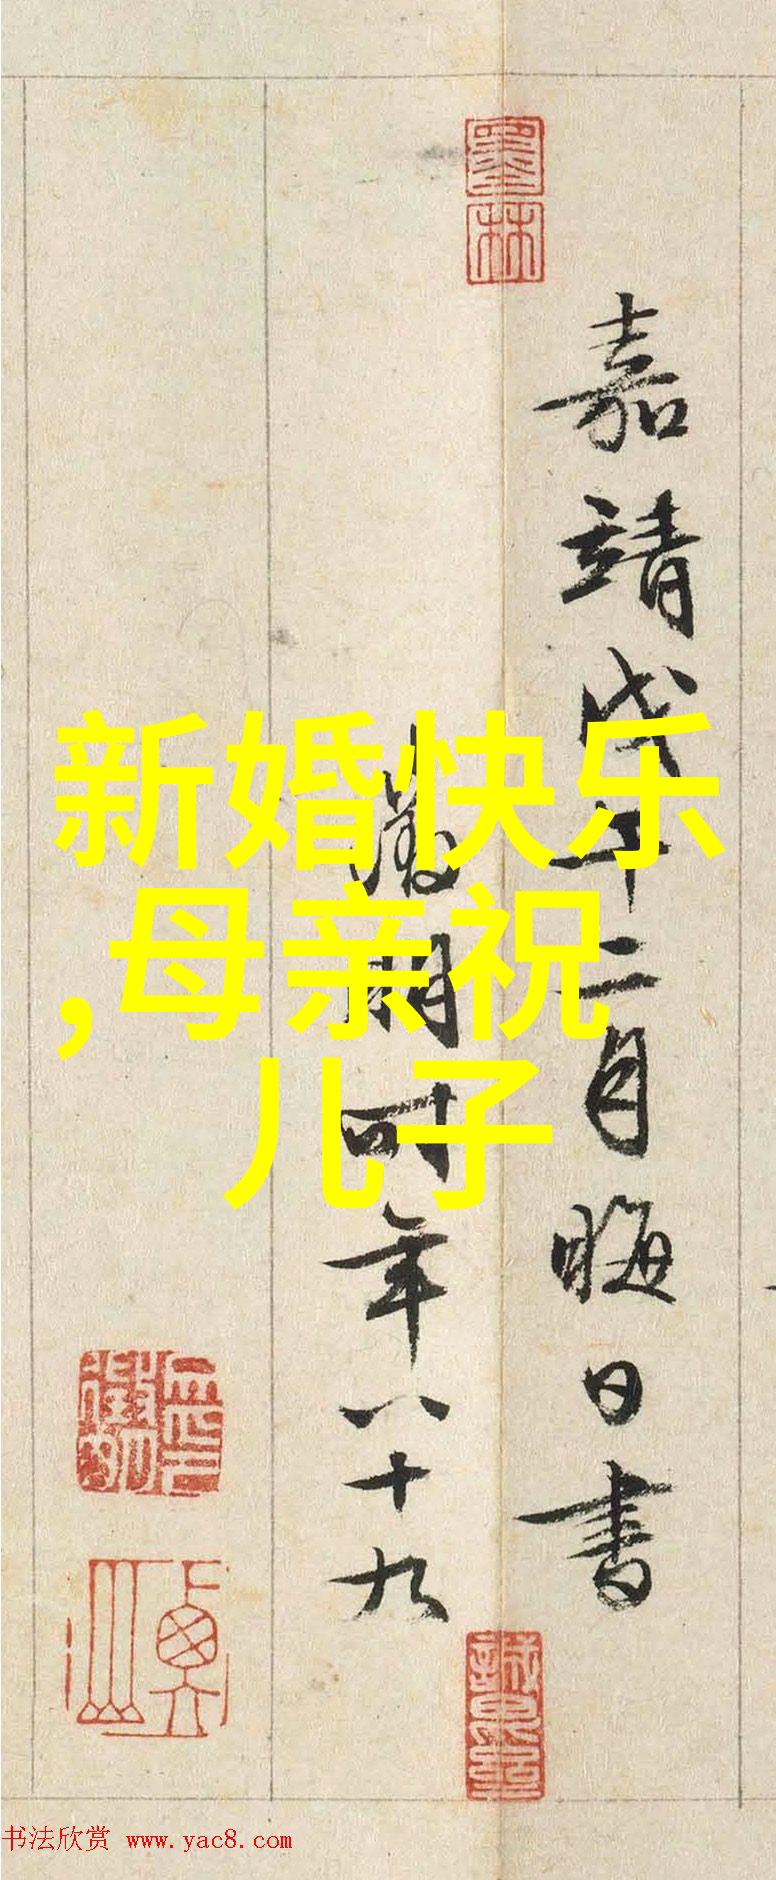 嘉靖戊午二月晦日書
徵明時年八十九
新婚快乐
,母亲祝
儿子
墨林
徵明
书法欣赏 www.yac8.com